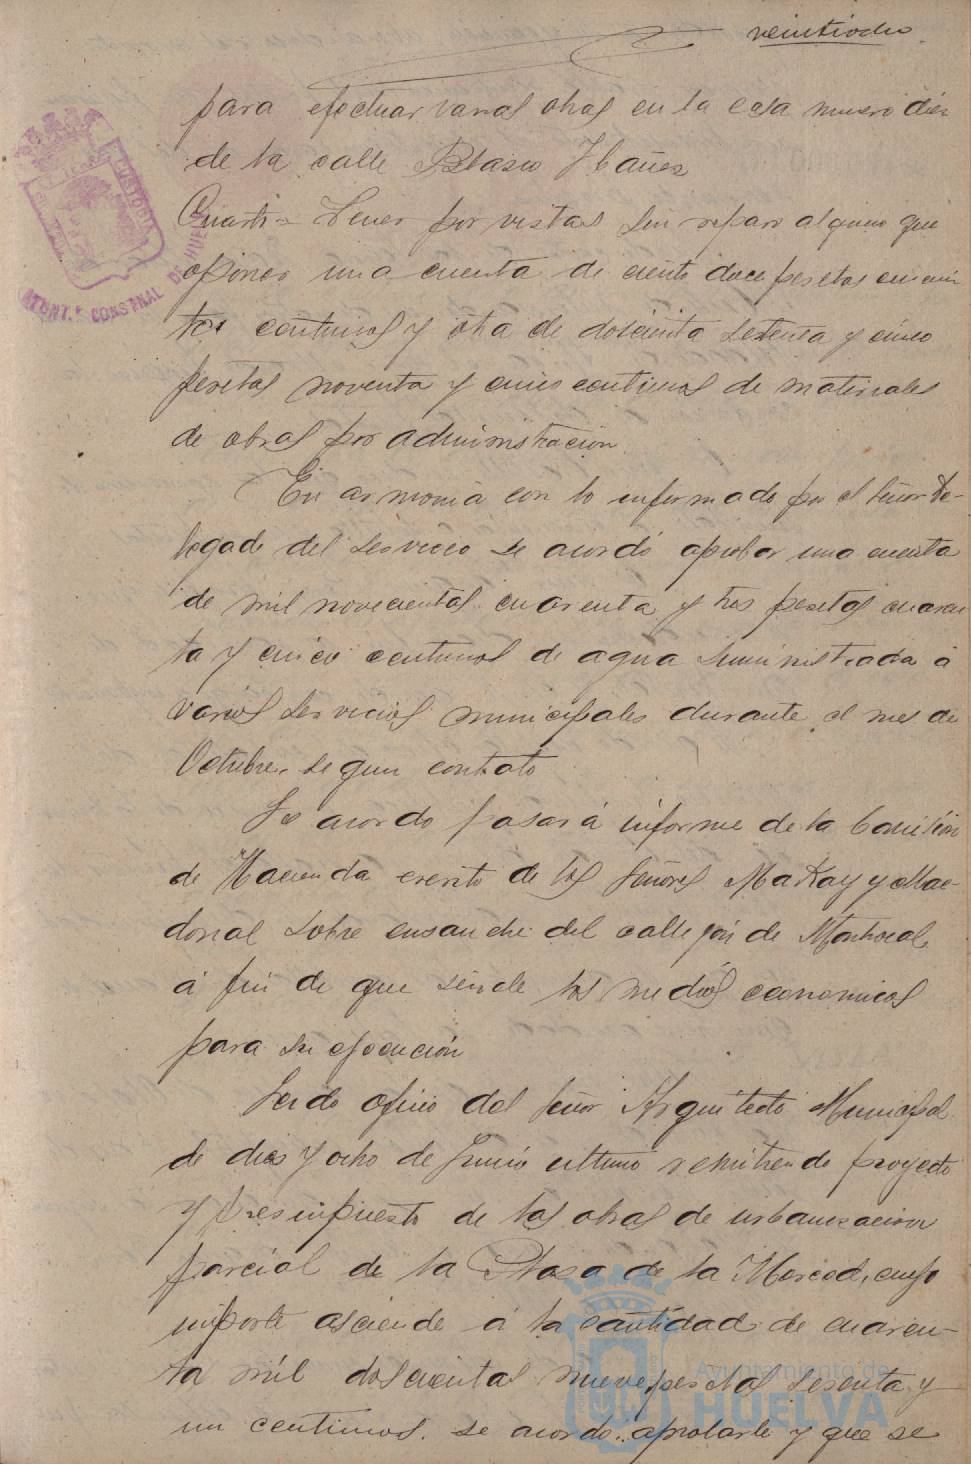 veintiocho
para efectuar varias obras en la casa numero diez
de la calle Blasco Ibañez
Cuarto = Tener por vistas sin reparo alguno que
oponer una cuenta de ciento doce pesetas cincuen
ta centimos y otra de doscienta setenta y cinco
pesetas noventa y cinco centimos de materiales
de obras por administracion
En armonia con lo informado por el señor De-
legado del servicio se acordó aprobar una cuenta
de mil novecientas cuarenta y tres pesetas cuaren
ta y cinco centimos de agua suministrada á
varios servicios municipales durante el mes de
Octubre, segun contrato
Se acordo pasar á informe de la Comision
de Hacienda escrito de los señores MaKay y Mac-
donal sobre ensanche del callejon de
á fin de que señale los medios economicos
para su ejecución
Leido oficio del señor Arquitecto Municipal
de diez y ocho de Junio ultimo remitiendo proyecto
y presupuesto de las obras de urbanizacion
parcial de la Plaza de la Merced, cuyo
importe asciende á la cantidad de cuaren-
ta mil doscientas nueve pesetas sesenta y
un centimos. se acordó aprobarlo y que se
AYUNT.º CONSTNAL DE HUELVA
Ayuntamiento de
HUELVA